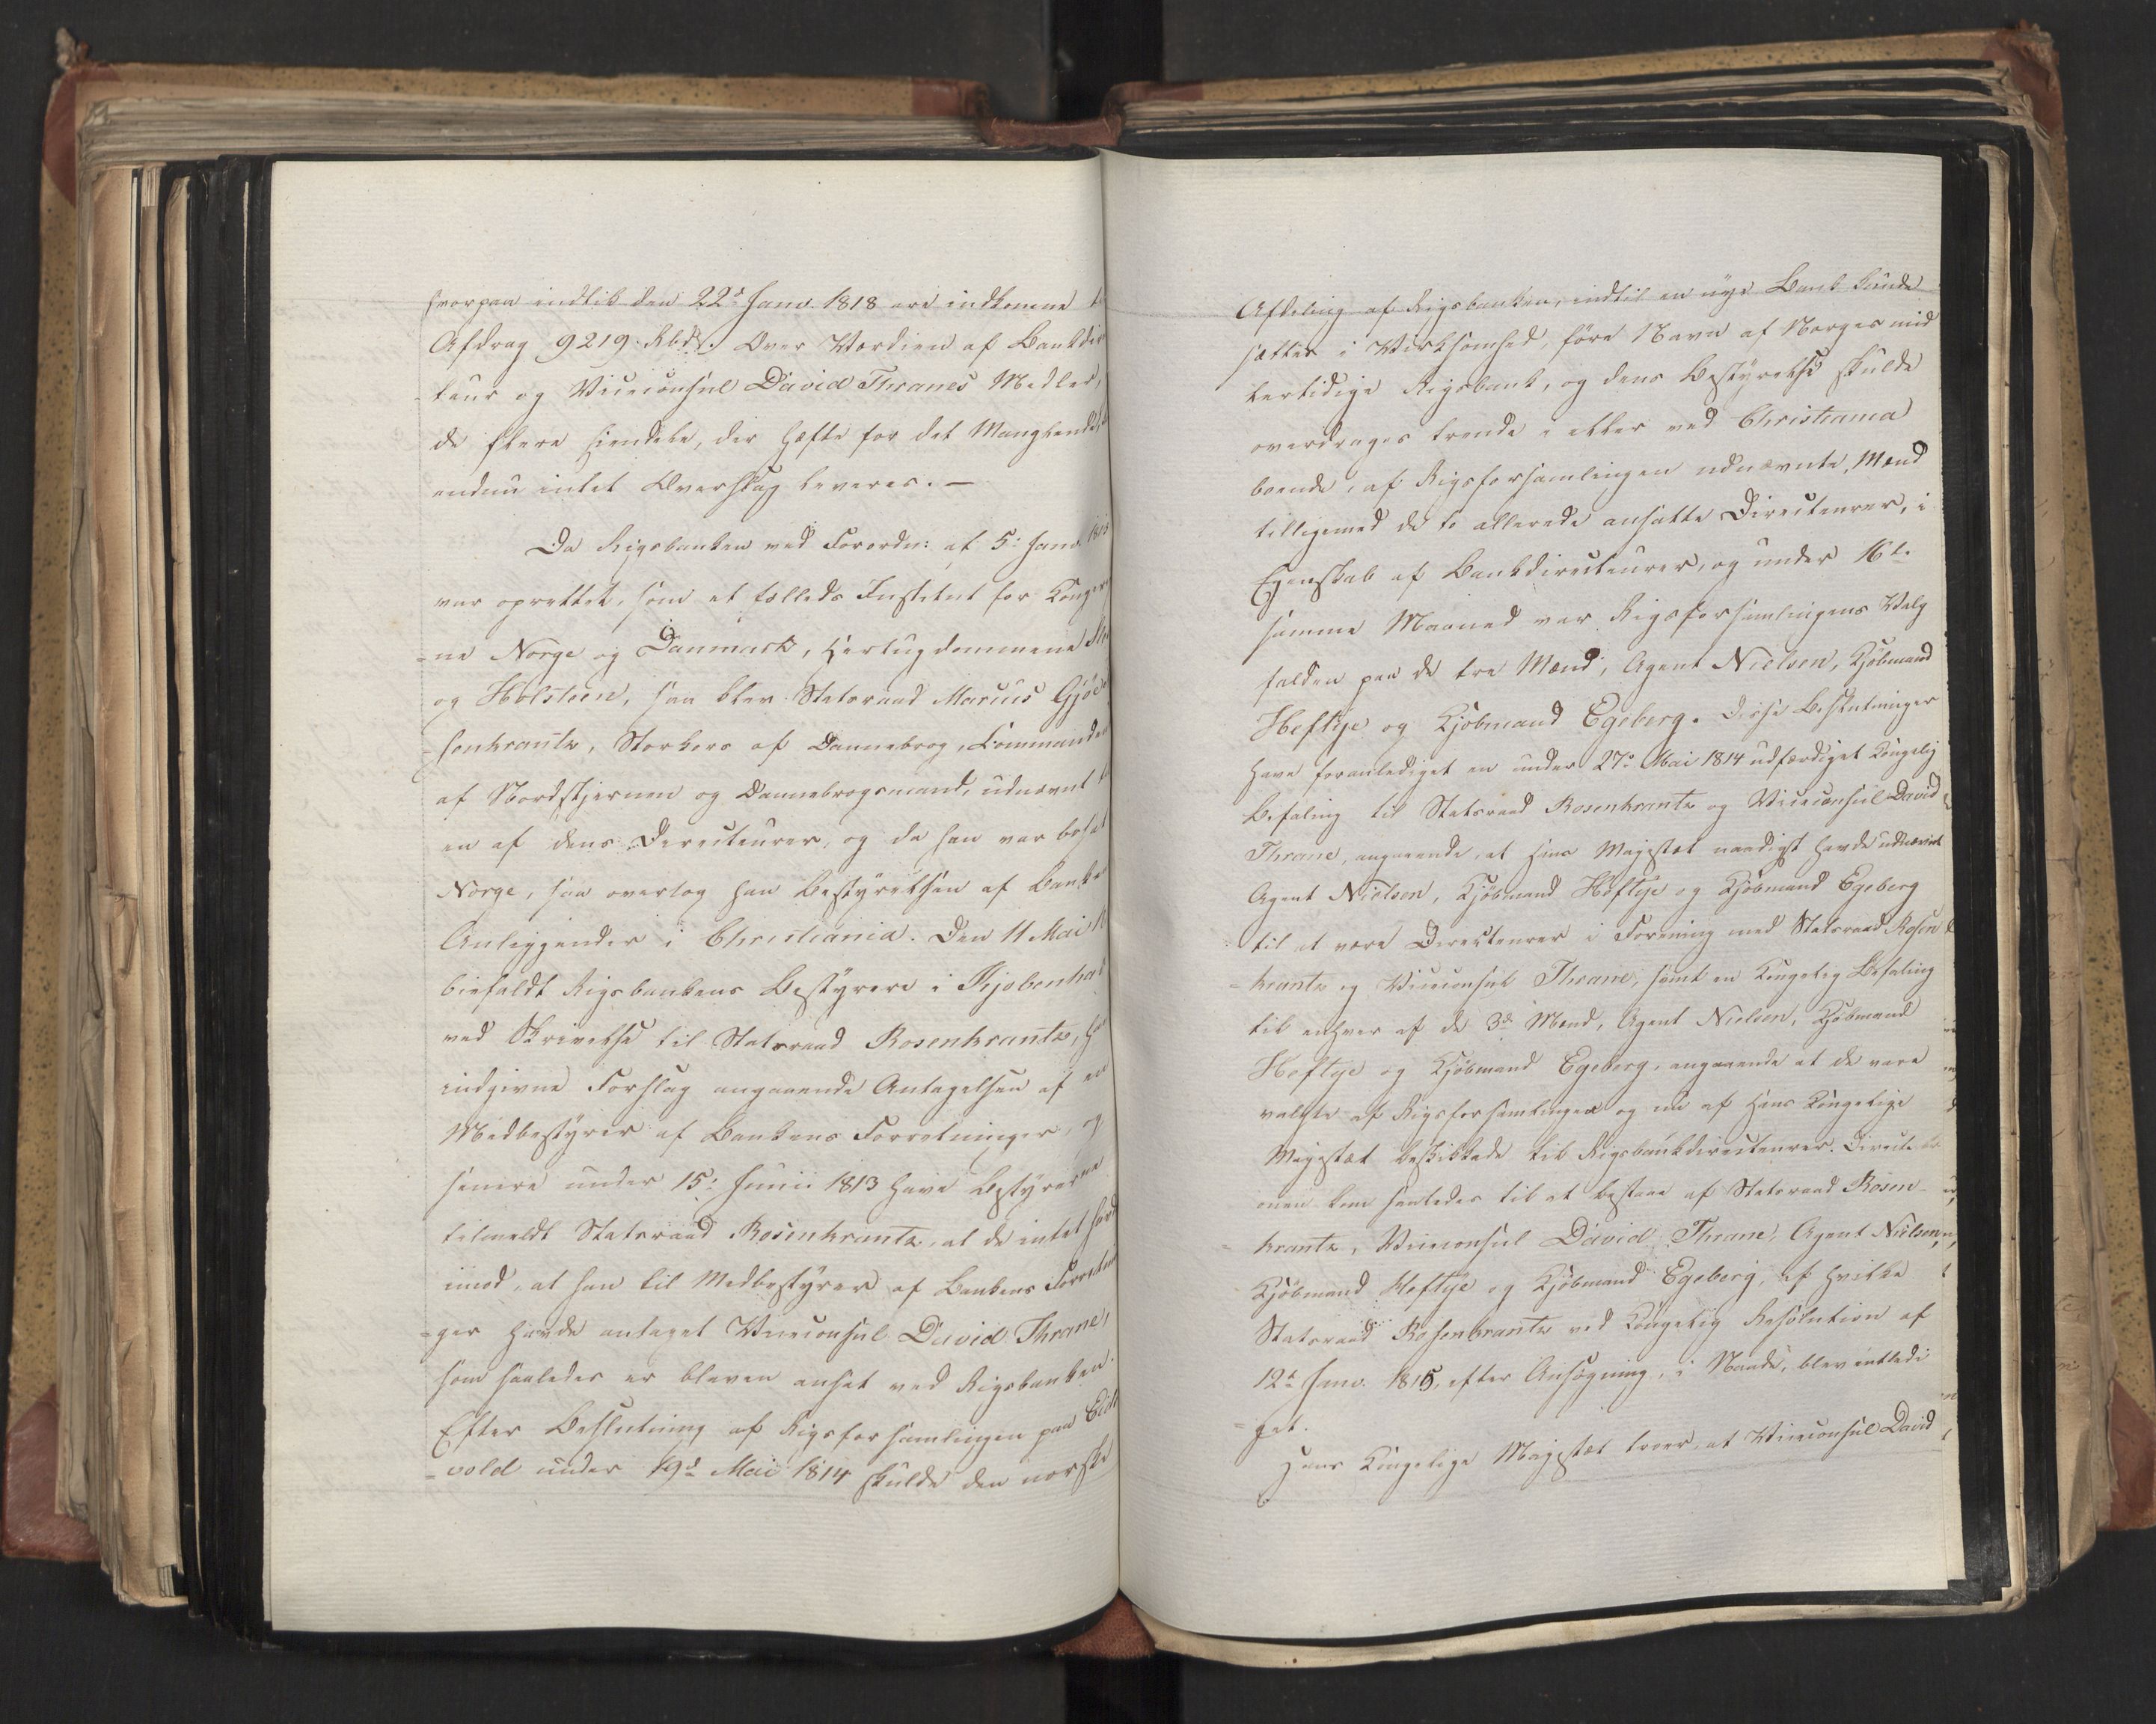 hvorpaa indtil den 22de Janv. 1818 ere indkomne
Afdrag 9219 Rbd. Over Værdien af Bankdirec
teur og Viceconsul David Thranes Midler,
de flere hiendele, der hæfte for det Manglende,
endnu intet Overslag leveres. —
Da Rigsbanken ved Forordn: af 5: Janv. 1813
var oprettet, som et fælleds Institut for Konge
ne Norge og Danmark, Hertugdommene
og Holsteen, saa blev Statsraad Marcus Gjøe
senkrantz, Storkors af Dannebrog, Commandeur
af Nordstjernen og Dannebrogsmand, udnævnt
en af dens Directeurer, og da han var bosat
Norge, saa overtog han Bestyrelsen af Banke
Anliggender i Christiania. Den 11 Mai
bifaldt Rigsbankens Bestyrere i Kjøbenha
ved Skrivelse til Statsraad Rosenkrantz,
indgivne Forslag angaaende Antagelsen af en
Medbestyrer af Bankens Forretninger, og
senere under 15: Junii 1813 have Bestyrerne
tilmeldt Statsraad Rosenkrantz, at de intet havde
imod, at han til Medbestyrer af Bankens Forretnin
=ger havde antaget Viceconsul David Thrane,
som saaledes er bleven ansat ved Rigsbanken.
Efter Beslutning af Rigsforsamlingen paa Eids
=vold under 19de Mai 1814 skulde den norske
Afdeling af Rigsbanken, indtil en nye Bank kunde
sættes i Virksomhed, føre Navn af Norges mid
lertidige Rigsbank, og dens Bestyrelse skulde
overdrages trende i eller ved Christiania
boende, af Rigsforsamlingen udnævnte, Mænd
tilligemed de to allerede ansatte Directeurer, i
Egenskab af Bankdirecteurer, og under 16de
samme Maaned var Rigsforsamlingens Valg
falden paa de tre Mænd, Agent Nielsen, Kjøbmand
Heftye og Kjøbmand Egeberg. Disse Beslutninger
have foranlediget en under 27de Mai 1814 udfærdiget Kongelig
Befaling til Statsraad Rosenkrantz og Viceconsul David
Thrane, angaaende, at Hans Majestæt naadigst havde udnævnt
Agent Nielsen, Kjøbmand Heftye og Kjøbmand Egeberg
til at være Directeurer i Forening med Statsraad Rosen
=krantz og Viceconsul Thrane, samt en Kongelig Befaling
til enhver af de 3de Mænd, Agent Nielsen, Kjøbmand
Heftye og Kjøbmand Egeberg, angaaende at de vare
valgte af Rigsforsamlingen og nu af Hans Kongelige
Majestæt beskikkede til Rigsbankdirecteurer. Directi
onen kom saaledes til at bestaae af Statsraad Rosen-
krantz, Viceconsul David Thrane, Agent Nielsen,
Kjøbmand Heftye og Kjøbmand Egeberg, af hvilke
Statsraad Rosenkrantz ved Kongelig Resolution af
12te Janv. 1815, efter Ansøgning, i Naade, blev entledi
=get.
Hans Kongelige Majestæt troer, at Viceconsul David